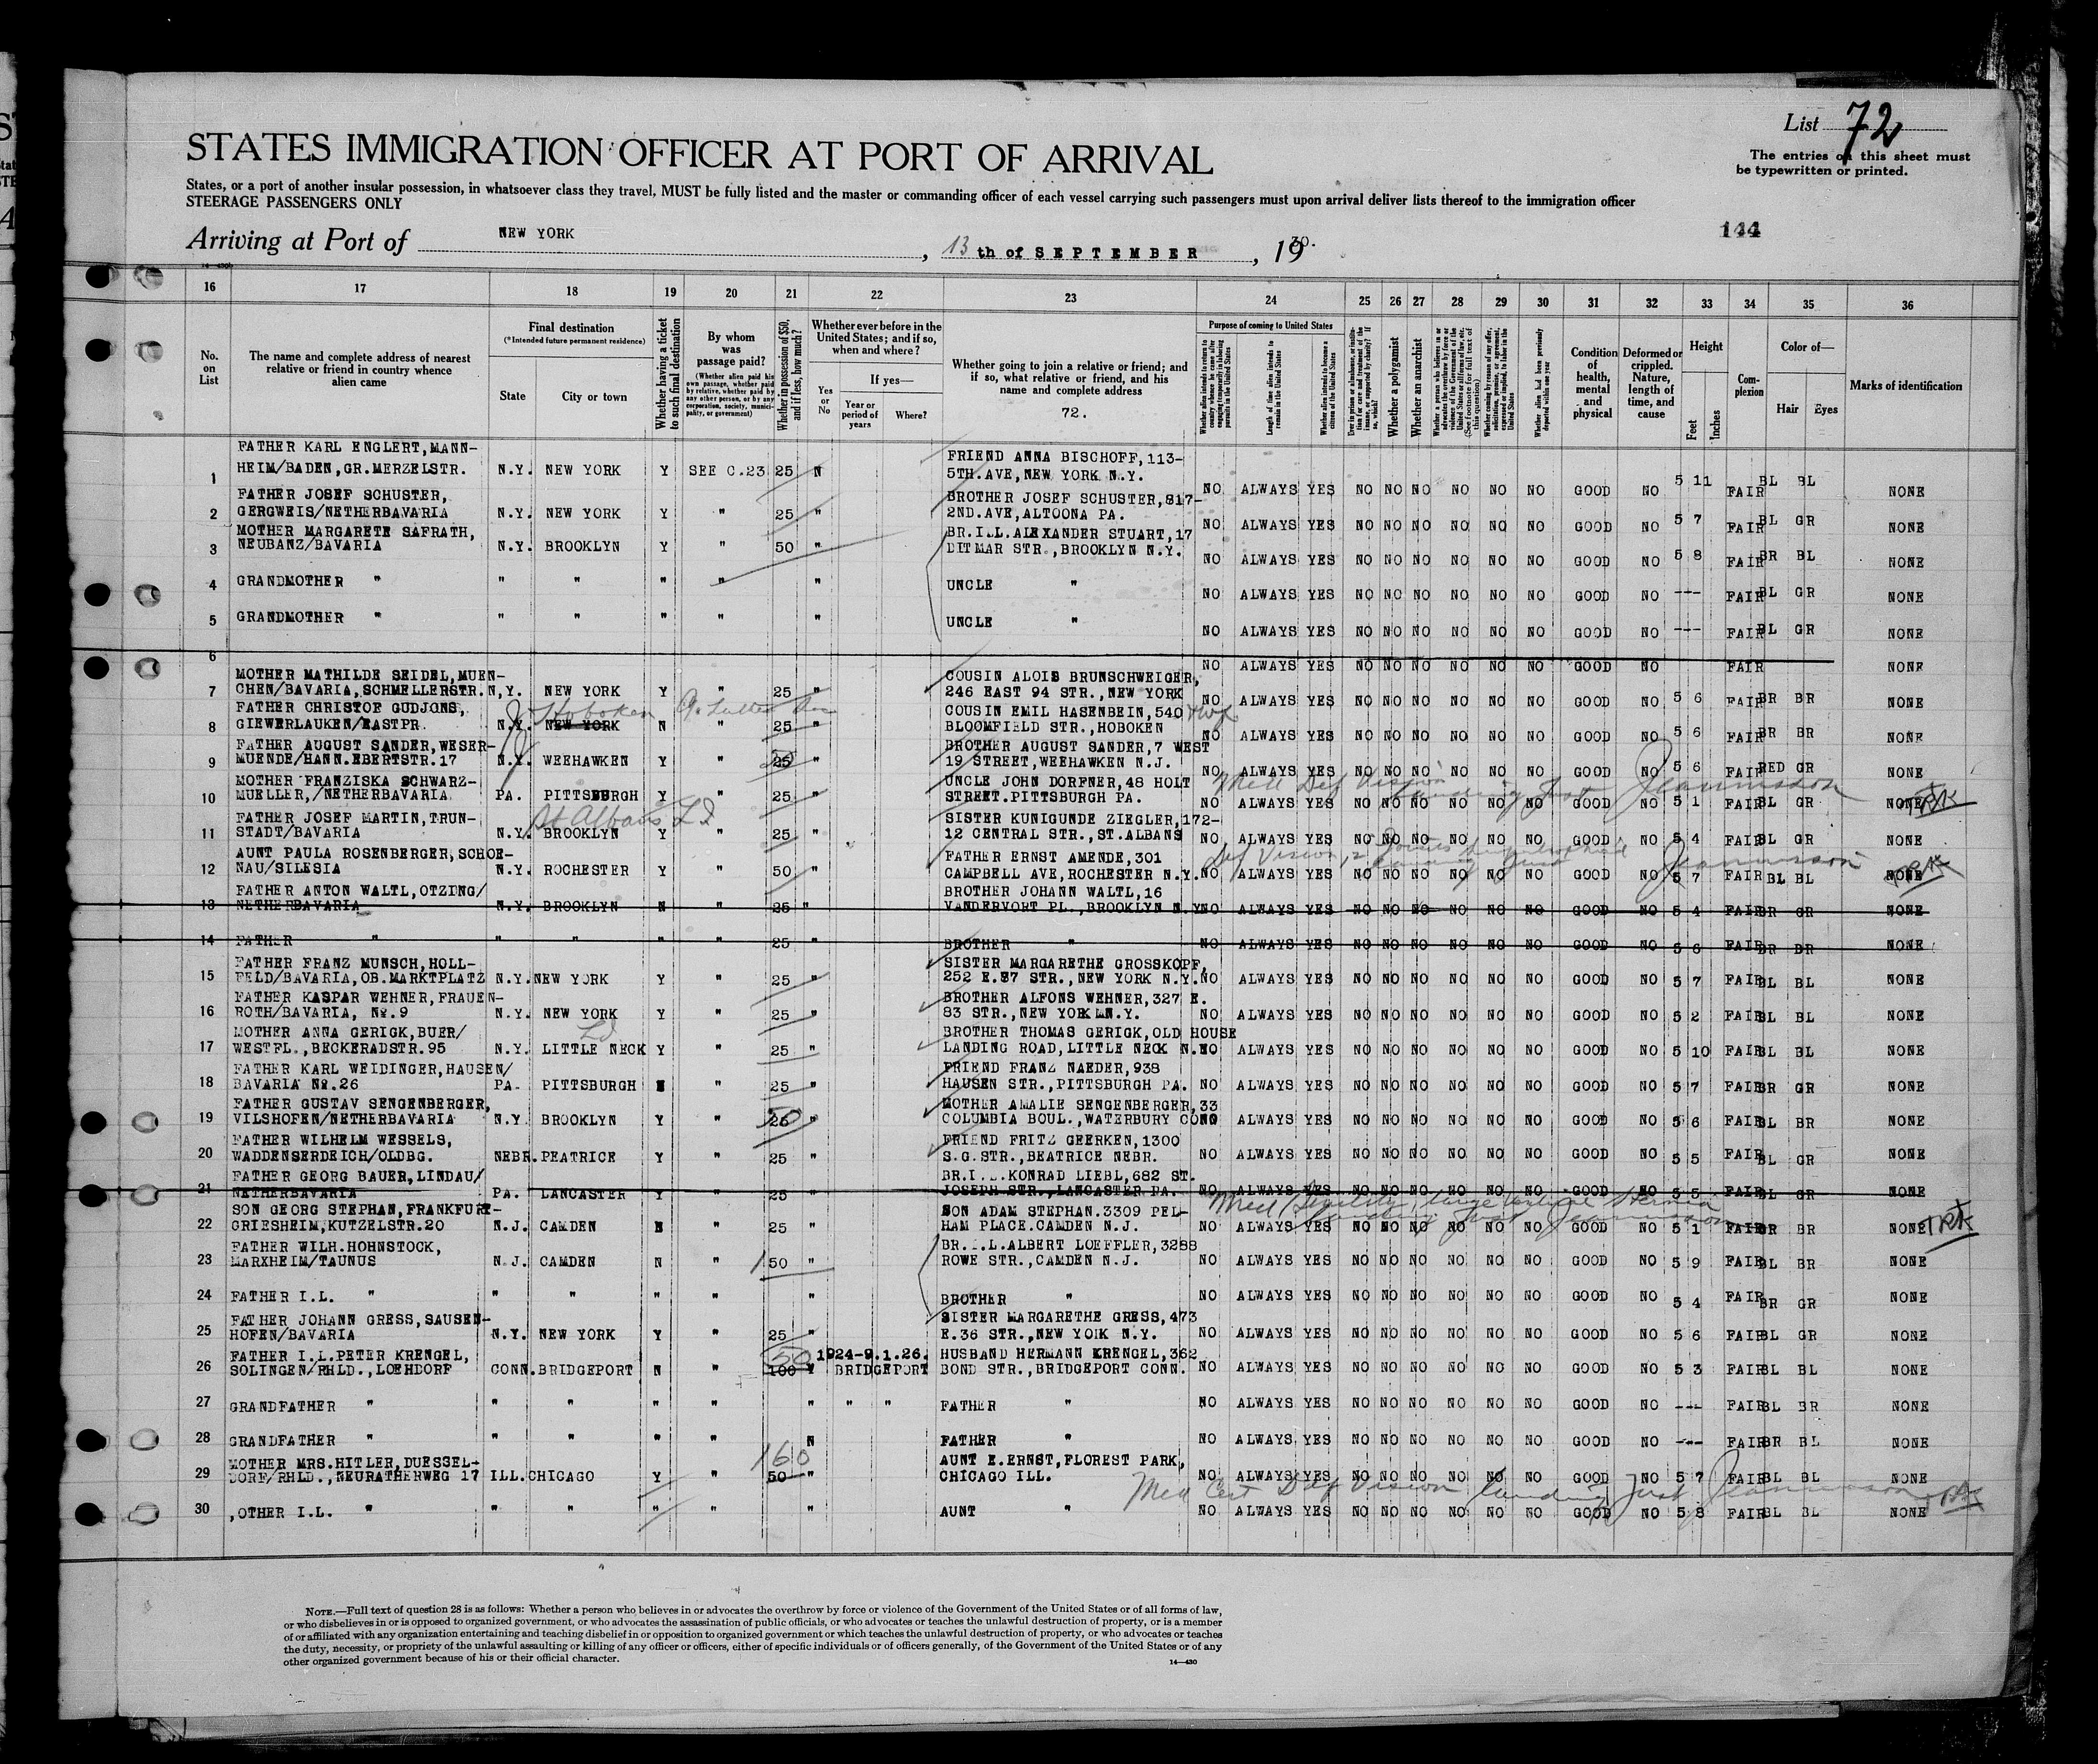 List 72
The entries on this sheet must
be typewritten or printed.
STATES IMMIGRATION OFFICER AT PORT OF ARRIVAL
States, or a port of another insular possession, in whatsoever class they travel, MUST be fully listed and the master or commanding officer of each vessel carrying such passengers must upon arrival deliver lists thereof to the immigration officer
STEERAGE PASSENGERS ONLY
144
Arriving at Port of NEW YORK, 13 th of SEPTEMBER, 1930.
16 17 18 19 20 21 22 23 24 25 26 27 28 29 30 31 32 33 34 35 36
No. on List
The name and complete address of nearest relative or friend in country whence alien came
Final destination
(*Intended future permanent residence)
State
City or town
Whether having a ticket to such final destination
By whom was passage paid?
(Whether alien paid his own passage, whether paid by relative, whether paid by any other person, or by any corporation, society, municipality, or government)
Whether in possession of $50, and if less, how much?
Whether ever before in the United States; and if so, when and where?
Yes or No
If yes—
Year or period of years
Where?
Whether going to join a relative or friend; and if so, what relative or friend, and his name and complete address
72.
Purpose of coming to United States
Length of time alien intends to remain in the United States
Whether alien intends to become a citizen of the United States
Whether a polygamist
Whether an anarchist
Condition of health, mental and physical
Deformed or crippled. Nature, length of time, and cause
Height
Feet
Inches
Complexion
Color of—
Hair
Eyes
Marks of identification
FATHER KARL ENGLERT, MANN-
1 HEIM/BADEN, GR.MERZELSTR. N.Y. NEW YORK Y SEE C.23 25 N FRIEND ANNA BISCHOFF, 113-
5TH.AVE, NEW YORK N.Y. NO ALWAYS YES NO NO NO NO NO NO GOOD NO 5 11 FAIR BL BL NONE
FATHER JOSEF SCHUSTER,
2 GERGWEIS/NETHERBAVARIA N.Y. NEW YORK Y " 25 " BROTHER JOSEF SCHUSTER, 817-
2ND.AVE, ALTOONA PA. NO ALWAYS YES NO NO NO NO NO NO GOOD NO 5 7 FAIR BL GR NONE
MOTHER MARGARETE SAFRATH,
3 NEUBANZ/BAVARIA N.Y. BROOKLYN Y " 50 " BR.I.L.ALEXANDER STUART, 17
DITMAR STR., BROOKLYN N.Y. NO ALWAYS YES NO NO NO NO NO NO GOOD NO 5 8 FAIR BR BL NONE
4 GRANDMOTHER " " " " " " UNCLE " NO ALWAYS YES NO NO NO NO NO NO GOOD NO --- FAIR BL GR NONE
5 GRANDMOTHER " " " " " " UNCLE " NO ALWAYS YES NO NO NO NO NO NO GOOD NO --- FAIR BL GR NONE
6 NO ALWAYS YES NO NO NO NO NO NO GOOD NO FAIR NONE
MOTHER MATHILDE SEIDEL, MUEN-
7 CHEN/BAVARIA, SCHMELLERSTR. N.Y. NEW YORK Y " 25 " COUSIN ALOIS BRUNSCHWEIGER,
246 EAST 94 STR., NEW YORK NO ALWAYS YES NO NO NO NO NO NO GOOD NO 5 6 FAIR BR BR NONE
FATHER CHRISTOF GUDJONS, Hoboken
8 GIEWERLAUKEN/EASTPR. N.Y. NEW YORK N " 25 " COUSIN EMIL HASENBEIN, 540
BLOOMFIELD STR., HOBOKEN NO ALWAYS YES NO NO NO NO NO NO GOOD NO 5 6 FAIR BR BR NONE
FATHER AUGUST SANDER, WESER-
9 MUENDE/HANN.EBERTSTR.17 N.Y. WEEHAWKEN Y " 25 " BROTHER AUGUST SANDER, 7 WEST
19 STREET, WEEHAWKEN N.J. NO ALWAYS YES NO NO NO NO NO NO GOOD NO 5 6 FAIR RED GR NONE
MOTHER FRANZISKA SCHWARZ- Def Vision
10 MUELLER,/NETHERBAVARIA PA. PITTSBURGH Y " 25 " UNCLE JOHN DORFNER, 48 HOLT
STREET.PITTSBURGH PA. NO ALWAYS YES NO NO NO NO NO NO GOOD NO 5 1 FAIR BL GR NONE
FATHER JOSEF MARTIN, TRUN- St Albans L I
11 STADT/BAVARIA N.Y. BROOKLYN Y " 25 " SISTER KUNIGUNDE ZIEGLER, 172-
12 CENTRAL STR., ST.ALBANS NO ALWAYS YES NO NO NO NO NO NO GOOD NO 5 4 FAIR BL GR NONE
AUNT PAULA ROSENBERGER, SCHOE- Def Vision
12 NAU/SILESIA N.Y. ROCHESTER Y " 50 " FATHER ERNST AMENDE, 301
CAMPBELL AVE, ROCHESTER N.Y. NO ALWAYS YES NO NO NO NO NO NO GOOD NO 5 7 FAIR BL BL NONE
FATHER ANTON WALTL, OTZING/
13 NETHERBAVARIA N.Y. BROOKLYN N " 25 " BROTHER JOHANN WALTL, 16
VANDERVORT PL., BROOKLYN N.Y. NO ALWAYS YES NO NO NO NO NO NO GOOD NO 5 4 FAIR BR GR NONE
14 FATHER " " " " " 25 " BROTHER " NO ALWAYS YES NO NO NO NO NO NO GOOD NO 5 6 FAIR BR BR NONE
FATHER FRANZ MUNSCH, HOLL-
15 FELD/BAVARIA, OB.MARKTPLATZ N.Y. NEW YORK Y " 25 " SISTER MARGARETHE GROSSKOPF,
252 E.87 STR., NEW YORK N.Y. NO ALWAYS YES NO NO NO NO NO NO GOOD NO 5 7 FAIR BL BL NONE
FATHER KASPAR WEHNER, FRAUEN-
16 ROTH/BAVARIA, No.9 N.Y. NEW YORK Y " 25 " BROTHER ALFONS WEHNER, 327 E.
83 STR., NEW YORK N.Y. NO ALWAYS YES NO NO NO NO NO NO GOOD NO 5 2 FAIR BL BL NONE
MOTHER ANNA GERIGK, BUER/
17 WESTFL., BECKERADSTR.95 N.Y. LITTLE NECK Y " 25 " BROTHER THOMAS GERIGK, OLD HOUSE
LANDING ROAD, LITTLE NECK N. NO ALWAYS YES NO NO NO NO NO NO GOOD NO 5 10 FAIR BL BL NONE
FATHER KARL WEIDINGER, HAUSEN/
18 BAVARIA No.26 PA. PITTSBURGH N " 25 " FRIEND FRANZ NAEDER, 938
HAUSEN STR., PITTSBURGH PA. NO ALWAYS YES NO NO NO NO NO NO GOOD NO 5 7 FAIR BR GR NONE
FATHER GUSTAV SENGENBERGER,
19 VILSHOFEN/NETHERBAVARIA N.Y. BROOKLYN Y " 25 50 " MOTHER AMALIE SENGENBERGER, 33
COLUMBIA BOUL., WATERBURY CONN NO ALWAYS YES NO NO NO NO NO NO GOOD NO 5 6 FAIR BL BR NONE
FATHER WILHELM WESSELS,
20 WADDENSERDEICH/OLDBG. NEBR. PEATRICE Y " 25 " FRIEND FRITZ GEERKEN, 1300
S.G.STR., BEATRICE NEBR. NO ALWAYS YES NO NO NO NO NO NO GOOD NO 5 5 FAIR BL GR NONE
FATHER GEORG BAUER, LINDAU/
21 NETHERBAVARIA PA. LANCASTER Y " 25 " BR.I.L.KONRAD LIEBL, 682 ST.
JOSEPH STR., LANCASTER PA. NO ALWAYS YES NO NO NO NO NO NO GOOD NO 5 5 FAIR BL GR NONE
SON GEORG STEPHAN, FRANKFURT-
22 GRIESHEIM, KUTZELSTR.20 N.J. CAMDEN N " 25 " SON ADAM STEPHAN.3309 PEL-
HAM PLACE.CAMDEN N.J. NO ALWAYS YES NO NO NO NO NO NO GOOD NO 5 1 FAIR GR BR NONE
FATHER WILH.HOHNSTOCK,
23 MARXHEIM/TAUNUS N.J. CAMDEN N " 150 " BR.I.L.ALBERT LOEFFLER, 3288
ROWE STR., CAMDEN N.J. NO ALWAYS YES NO NO NO NO NO NO GOOD NO 5 9 FAIR BL BR NONE
24 FATHER I.L. " " " " " " BROTHER " NO ALWAYS YES NO NO NO NO NO NO GOOD NO 5 4 FAIR BR GR NONE
FATHER JOHANN GRESS, SAUSEN-
25 HOFEN/BAVARIA N.Y. NEW YORK Y " 25 " SISTER MARGARETHE GRESS, 473
E.36 STR., NEW YORK N.Y. NO ALWAYS YES NO NO NO NO NO NO GOOD NO 5 6 FAIR BL GR NONE
FATHER I.L.PETER KRENGEL, 50 1924-9.1.26.
26 SOLINGEN/RHLD., LOEHDORF CONN. BRIDGEPORT N " 100 Y BRIDGEPORT HUSBAND HERMANN KRENGEL, 362
BOND STR., BRIDGEPORT CONN. NO ALWAYS YES NO NO NO NO NO NO GOOD NO 5 3 FAIR BL BL NONE
27 GRANDFATHER " " " " " " " " FATHER " NO ALWAYS YES NO NO NO NO NO NO GOOD NO --- FAIR BL BR NONE
28 GRANDFATHER " " " " " N FATHER " NO ALWAYS YES NO NO NO NO NO NO GOOD NO --- FAIR BR BL NONE
MOTHER MRS.HITLER, DUESSEL- 160
29 DORF/RHLD., NEURATHERWEG 17 ILL. CHICAGO Y " 50 " AUNT E.ERNST, FLOREST PARK,
CHICAGO ILL. NO ALWAYS YES NO NO NO NO NO NO GOOD NO 5 7 FAIR BL BL NONE
Med Cert Def Vision
30 ,OTHER I.L. " " " " " " AUNT " NO ALWAYS YES NO NO NO NO NO NO GOOD NO 5 8 FAIR BL BL NONE
NOTE.—Full text of question 28 is as follows: Whether a person who believes in or advocates the overthrow by force or violence of the Government of the United States or of all forms of law,
or who disbelieves in or is opposed to organized government, or who advocates the assassination of public officials, or who advocates or teaches the unlawful destruction of property, or is a member
of or affiliated with any organization entertaining and teaching disbelief in or opposition to organized government or which teaches the unlawful destruction of property, or who advocates or teaches
the duty, necessity, or propriety of the unlawful assaulting or killing of any officer or officers, either of specific individuals or of officers generally, of the Government of the United States or of any
other organized government because of his or their official character.
14—430